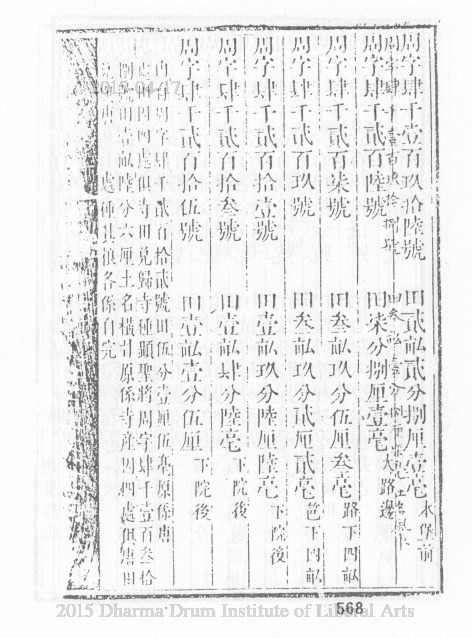 周字肆千壹百玖拾陸號 田貳畝貳分捌厘壹毫 水保前
周字肆千壹百玖拾捌號 田叁畝壹分
周字肆千貳百陸號 田柒分捌厘壹毫 大路邊
周字肆千貳百柒號 田叁畝玖分伍厘叁毫 路下四畝
周字肆千貳百玖號 田叁畝玖分貳厘貳毫 芭下四畝
周字肆千貳百拾壹號 田壹畝玖分陸厘陸毫 下院後
周字肆千貳百拾叁號 田壹畝肆分陸毫 下院後
周字肆千貳百拾伍號 田壹畝壹分伍厘 下院後
周字肆千貳百拾貳號田伍分壹厘伍毫原係唐
俱寺田兌歸寺種顯聖將周字肆千壹百叁拾
號田壹畝陸分六厘土名橫廿原係寺產因四處俱唐田
處種其糧各係自完
2015-04-17
568
2015 Dharma Drum Institute of Liberal Arts